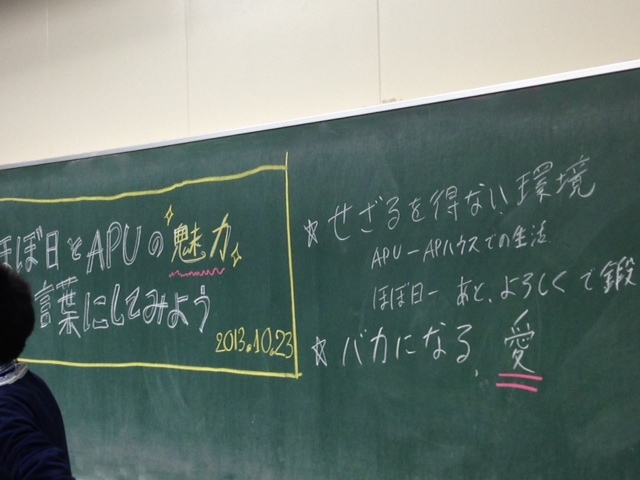 ほぼ日とAPUの魅力
言葉にしてみよう
2013.10.23
☆せざるを得ない環境
APU－APハウスでの生活
ほぼ日－あと、よろしくで鍛
☆バカになる、愛